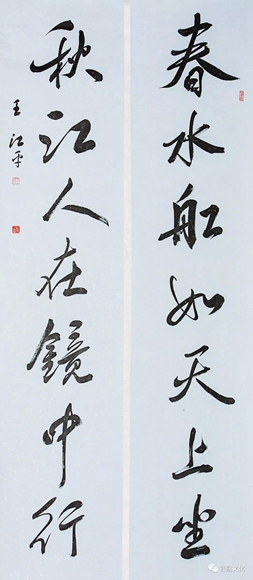 春水舡如天上坐
秋江人在鏡中行
王江平